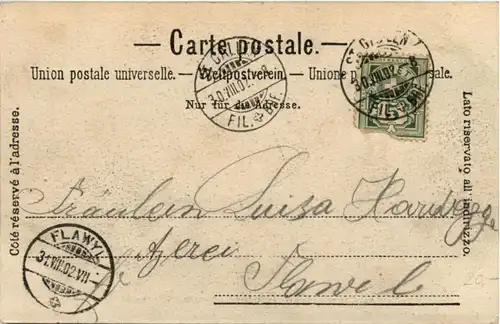 — Carte postale. —
Union postale universelle. — Weltpostverein. — Unione postale universale.
Nur für die Adresse.
Côté réservé à l'adresse.
Lato riservato all' indirizzo.
ST. GALLEN
30.VIII.02. 8
FIL. BRF.
ST. GALLEN
30.VIII.02. 8
FIL. BRF.
Fräulein Luisa
Flawil
FLAWYL
31.VIII.02.VII